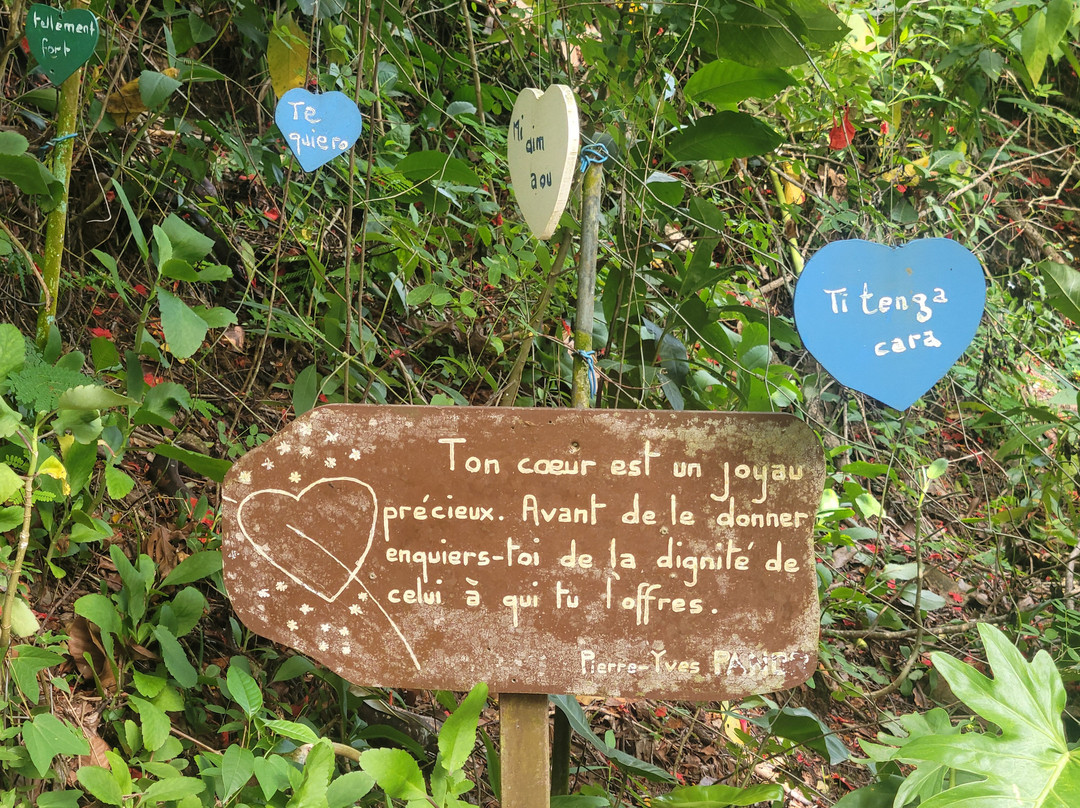 tellement
fort
Te
quiero
Mi
aim
aou
Ti tenga
cara
Ton coeur est un joyau
précieux. Avant de le donner
enquiers-toi de la dignité de
celui à qui tu l'offres.
Pierre-Yves